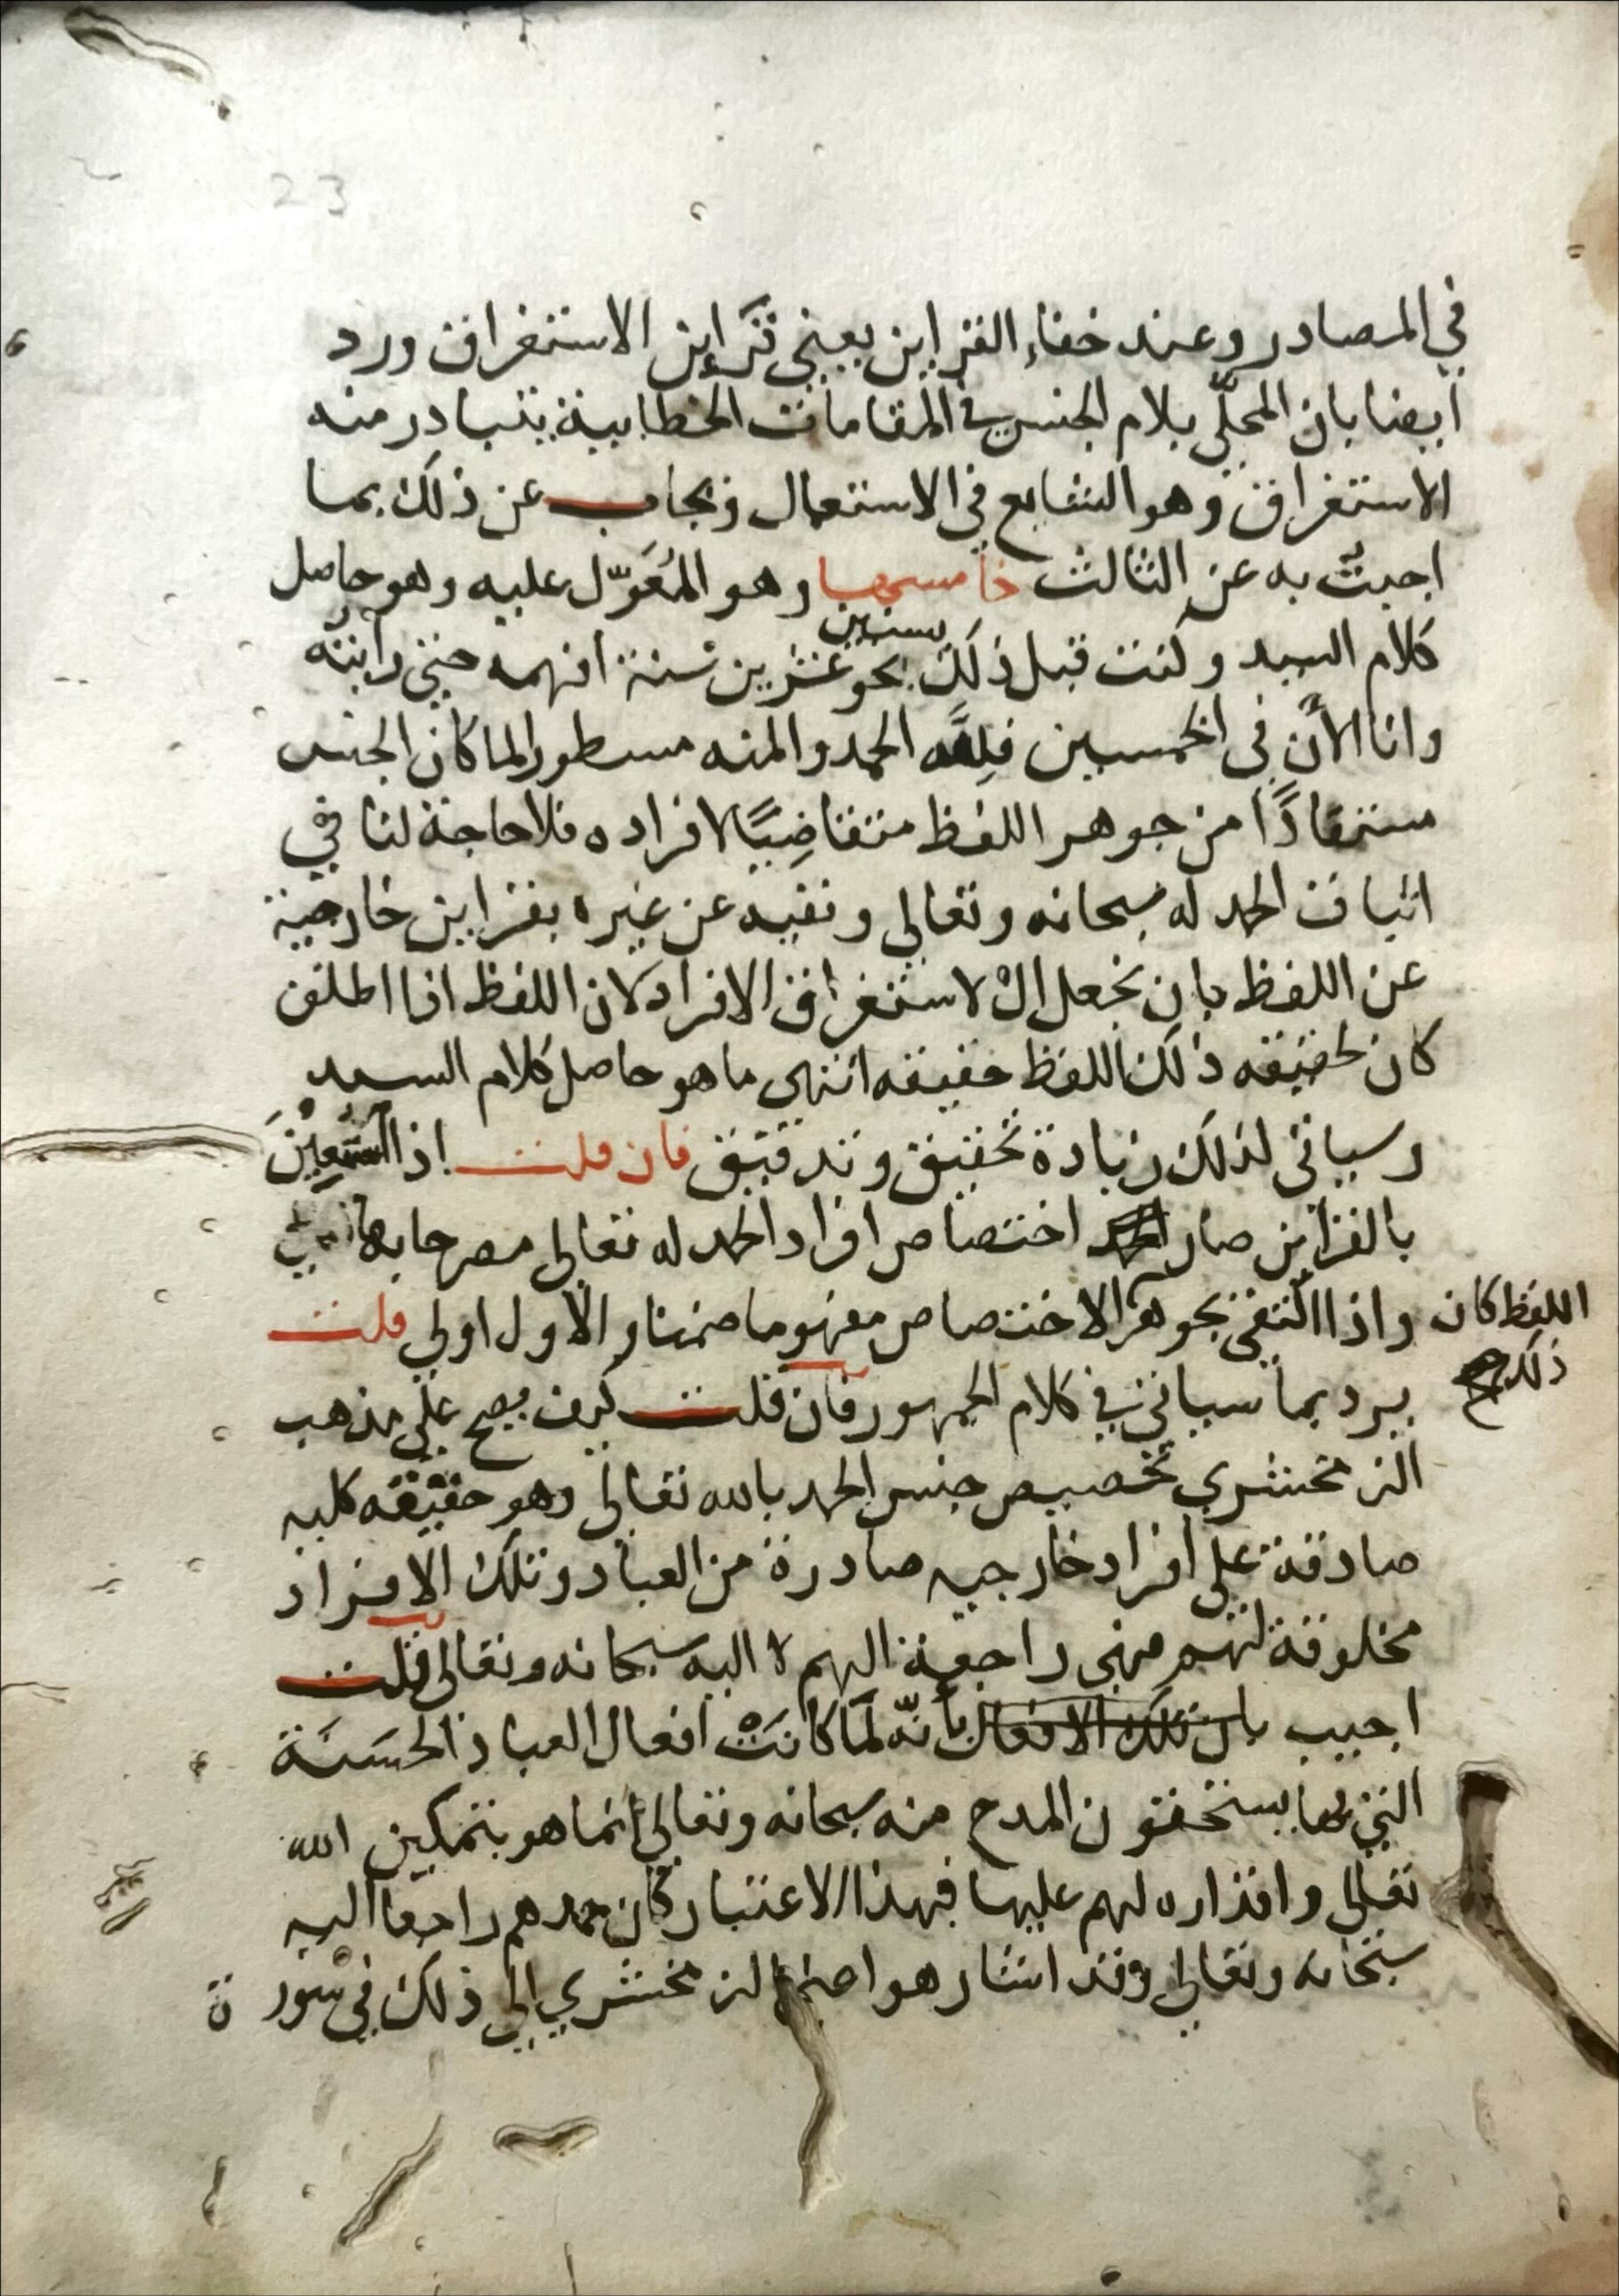 23
في المصادر وعند خفاء القراين يعني قراين الاستغراق ورد
ايضا بان المحلّى بلام الجنس في المقامات الخطابية يتبادر منه
الاستغراق وهو الشايع في الاستعمال ويجاب عن ذلك بما
اجبتُ به عن الثالث خامسها وهو المُعَوّل عليه وهو حاصل
كلام السيد وكنت قبل ذلك بنحو عشرين سنة افهمه حتى رأيته
وانا الآن في الخمسين فلِلّه الحمد والمنه مسطورا لما كان الجنس
مستفادًا من جوهر اللفظ متقاضِيًا لافراده فلا حاجة لنا في
اثبات الحمد له سبحانه وتعالى ونفيه عن غيره بقراين خارجية
عن اللفظ بان نجعل الْ لاستغراق الافراد لان اللفظ اذا اطلق
كان لحقيقه ذلك اللفظ حقيقه انتهى ما هو حاصل كلام السيد
وسياتي لذلك زيادة تحقيق وتدقيق فان قلت اذا استُعِيْنَ
بالقراين صار اختصاص افراد الحمد له تعالى مصرحا به
واذا اكتفى بجوهر الاختصاص مفهوما ضمنا والاول اولى قلت
اللفظ كان
ذلك صح
يرد بما سياتي في كلام الجمهور فان قلت كيف يصح على مذهب
الزمخشري تخصيص جنس الحمد بالله تعالى وهو حقيقه كليه
صادقة على افراد خارجيه صادرة من العباد وتلك الافراد
مخلوقة لهم فهي راجعة اليهم لا اليه سبحانه وتعالى قلت
اجيب بان تلك الافعال بأنّه لمّا كانتْ افعال العباد الحسَنَة
التي بها يستحقون المدح منه سبحانه وتعالى انما هو بتمكين الله
تعالى واقداره لهم عليها فبهذا الاعتبار كان حمدهم راجعا اليه
سبحانه وتعالى وقد اشار هو اعني الزمخشري الى ذلك في سورة